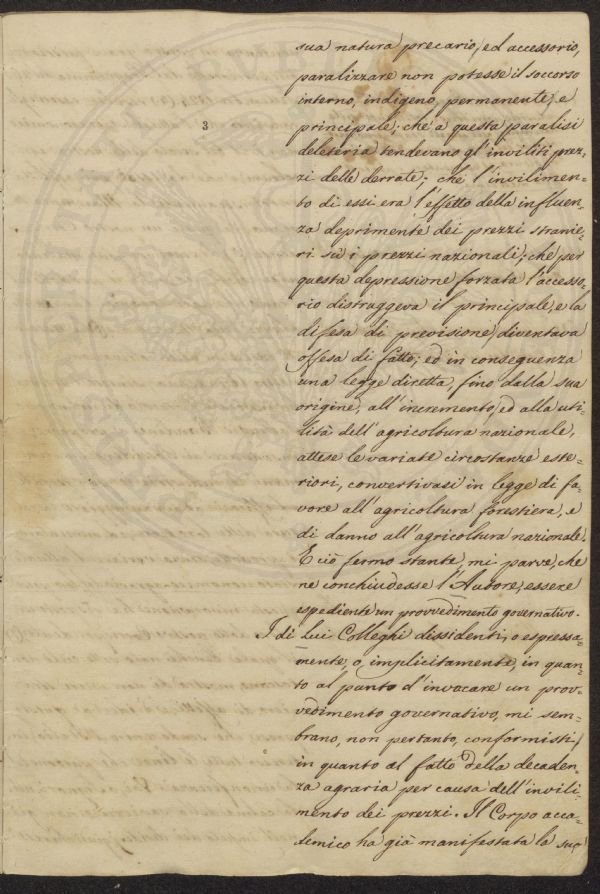 sua natura precario, ed accessorio,
paralizzare non potesse il soccorso
interno, indigeno, permanente, e
3
principale; che a questa paralisi
deleteria tendevano gl'inviliti prez-
zi delle derrate; che l'invilimen-
to di essi era l'effetto della influen-
za deprimente dei prezzi stranie-
ri su i prezzi nazionali; che per
questa depressione forzata l'accesso-
rio distruggeva il principale, e la
difesa di previsione, diventava
offesa di fatto; ed in conseguenza
una legge diretta, fino dalla sua
origine, all'incremento, ed alla uti-
lità dell'agricoltura nazionale,
attese le variate circostanze este-
riori, convertivasi in legge di fa-
vore all'agricoltura forestiera, e
di danno all'agricoltura nazionale.
E ciò fermo stante, mi parve, che
ne conchiudesse l'Autore, essere
espediente un provvedimento governativo.
I di lui Colleghi dissidenti, o espressa-
mente, o, implicitamente, in quan-
to al punto d'invocare un prov-
vedimento governativo, mi sem-
brano, non pertanto, conformisti,
in quanto al fatto della decaden-
za agraria per causa dell'invili-
mento dei prezzi. Il Corpo acca-
demico ha già manifestata la sua